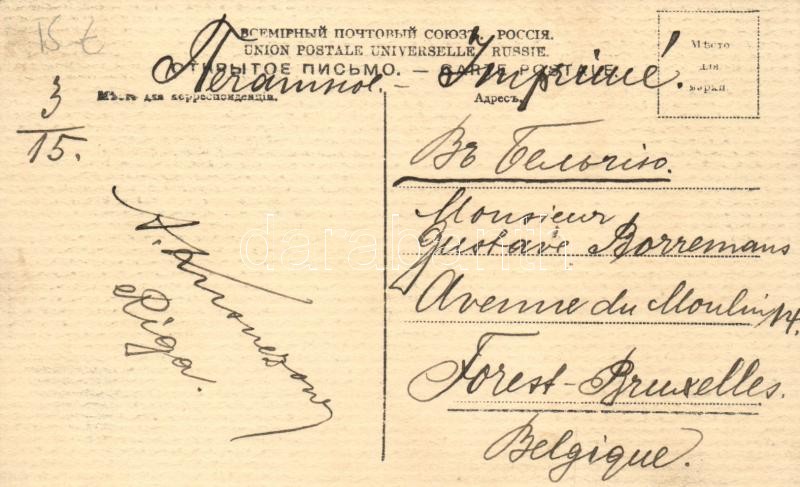 15 £
ВСЕМІРНЫЙ ПОЧТОВЫЙ СОЮЗЪ. РОССІЯ.
UNION POSTALE UNIVERSELLE. RUSSIE.
ОТКРЫТОЕ ПИСЬМО. — CARTE POSTALE
Печатное. — Imprimé.
Мѣсто
для
марки
Мѣсто для корреспонденціи.
Адресъ.
3
15.
Въ Бельгію.
Monsieur
Gustave Borremans
Avenue du Moulin 14.
Forest-Bruxelles.
Belgique.
Riga.
darabanth